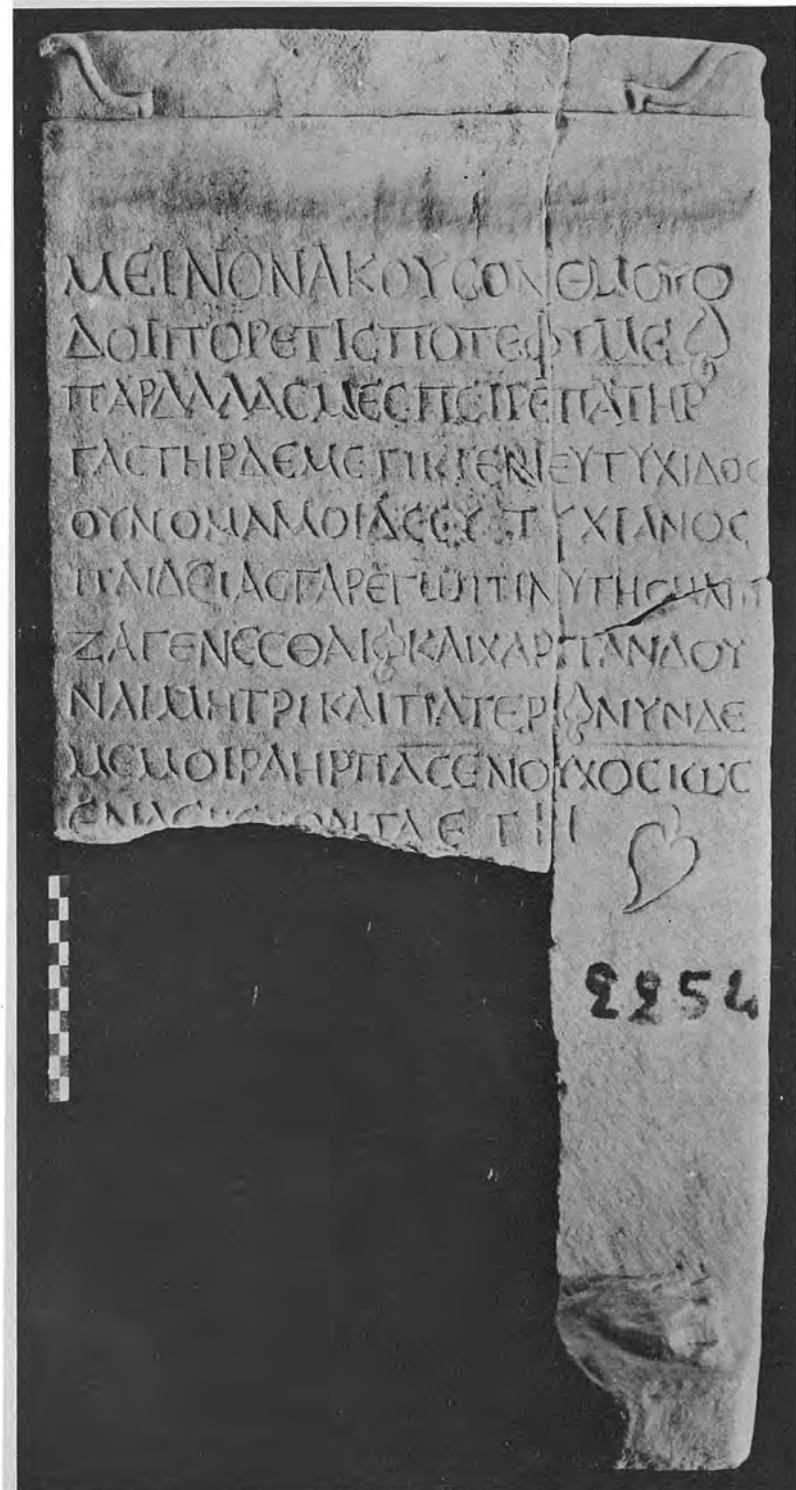 ΜΕΙΝΟΝΑΚΟΥϹΟΝΕΜΟΥΟ
ΔΟΙΠΟΡΕΤΙϹΠΟΤΕΦΥΜΕ
ΠΑΡΔΑΛΑϹΜΕϹΠΕΙΡΕΠΑΤΗΡ
ΓΑϹΤΗΡΔΕΜΕΤΙΚΤΕΝΕΥΤΥΧΙΔΟϹ
ΟΥΝΟΜΑΜΟΙΔΕΕΥΤΥΧΙΑΝΟϹ
ΠΑΙΔΕΙΑϹΓΑΡΕΓΩΠΙΝΥΤΗϹΗΛΠΙ
ΖΑΓΕΝΕϹΘΑΙΚΑΙΧΑΡΙΤΑΝΔΟΥ
ΝΑΙΜΗΤΡΙΚΑΙΠΑΤΕΡΙΝΥΝΔΕ
ΜΕΜΟΙΡΑΗΡΠΑϹΕΝΟΥΧΟϹΙΩϹ
ΕΤΗ
2254